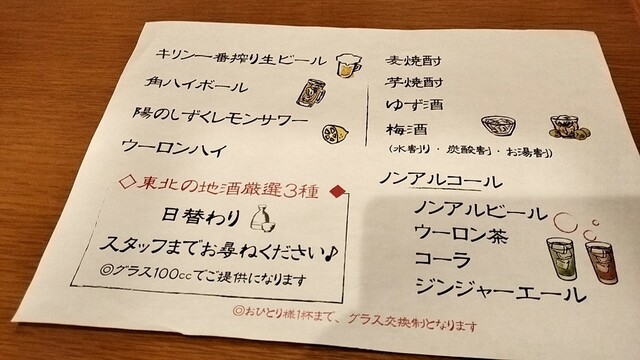 キリン一番搾り生ビール
角ハイボール
陽のしずくレモンサワー
ウーロンハイ
◇東北の地酒厳選3種◆
日替わり
スタッフまでお尋ねください♪
◎グラス100ccでご提供になります
麦焼酎
芋焼酎
ゆず酒
梅酒
(水割り・炭酸割・お湯割)
ノンアルコール
ノンアルビール
ウーロン茶
コーラ
ジンジャーエール
◎おひとり様1杯まで、グラス交換制となります